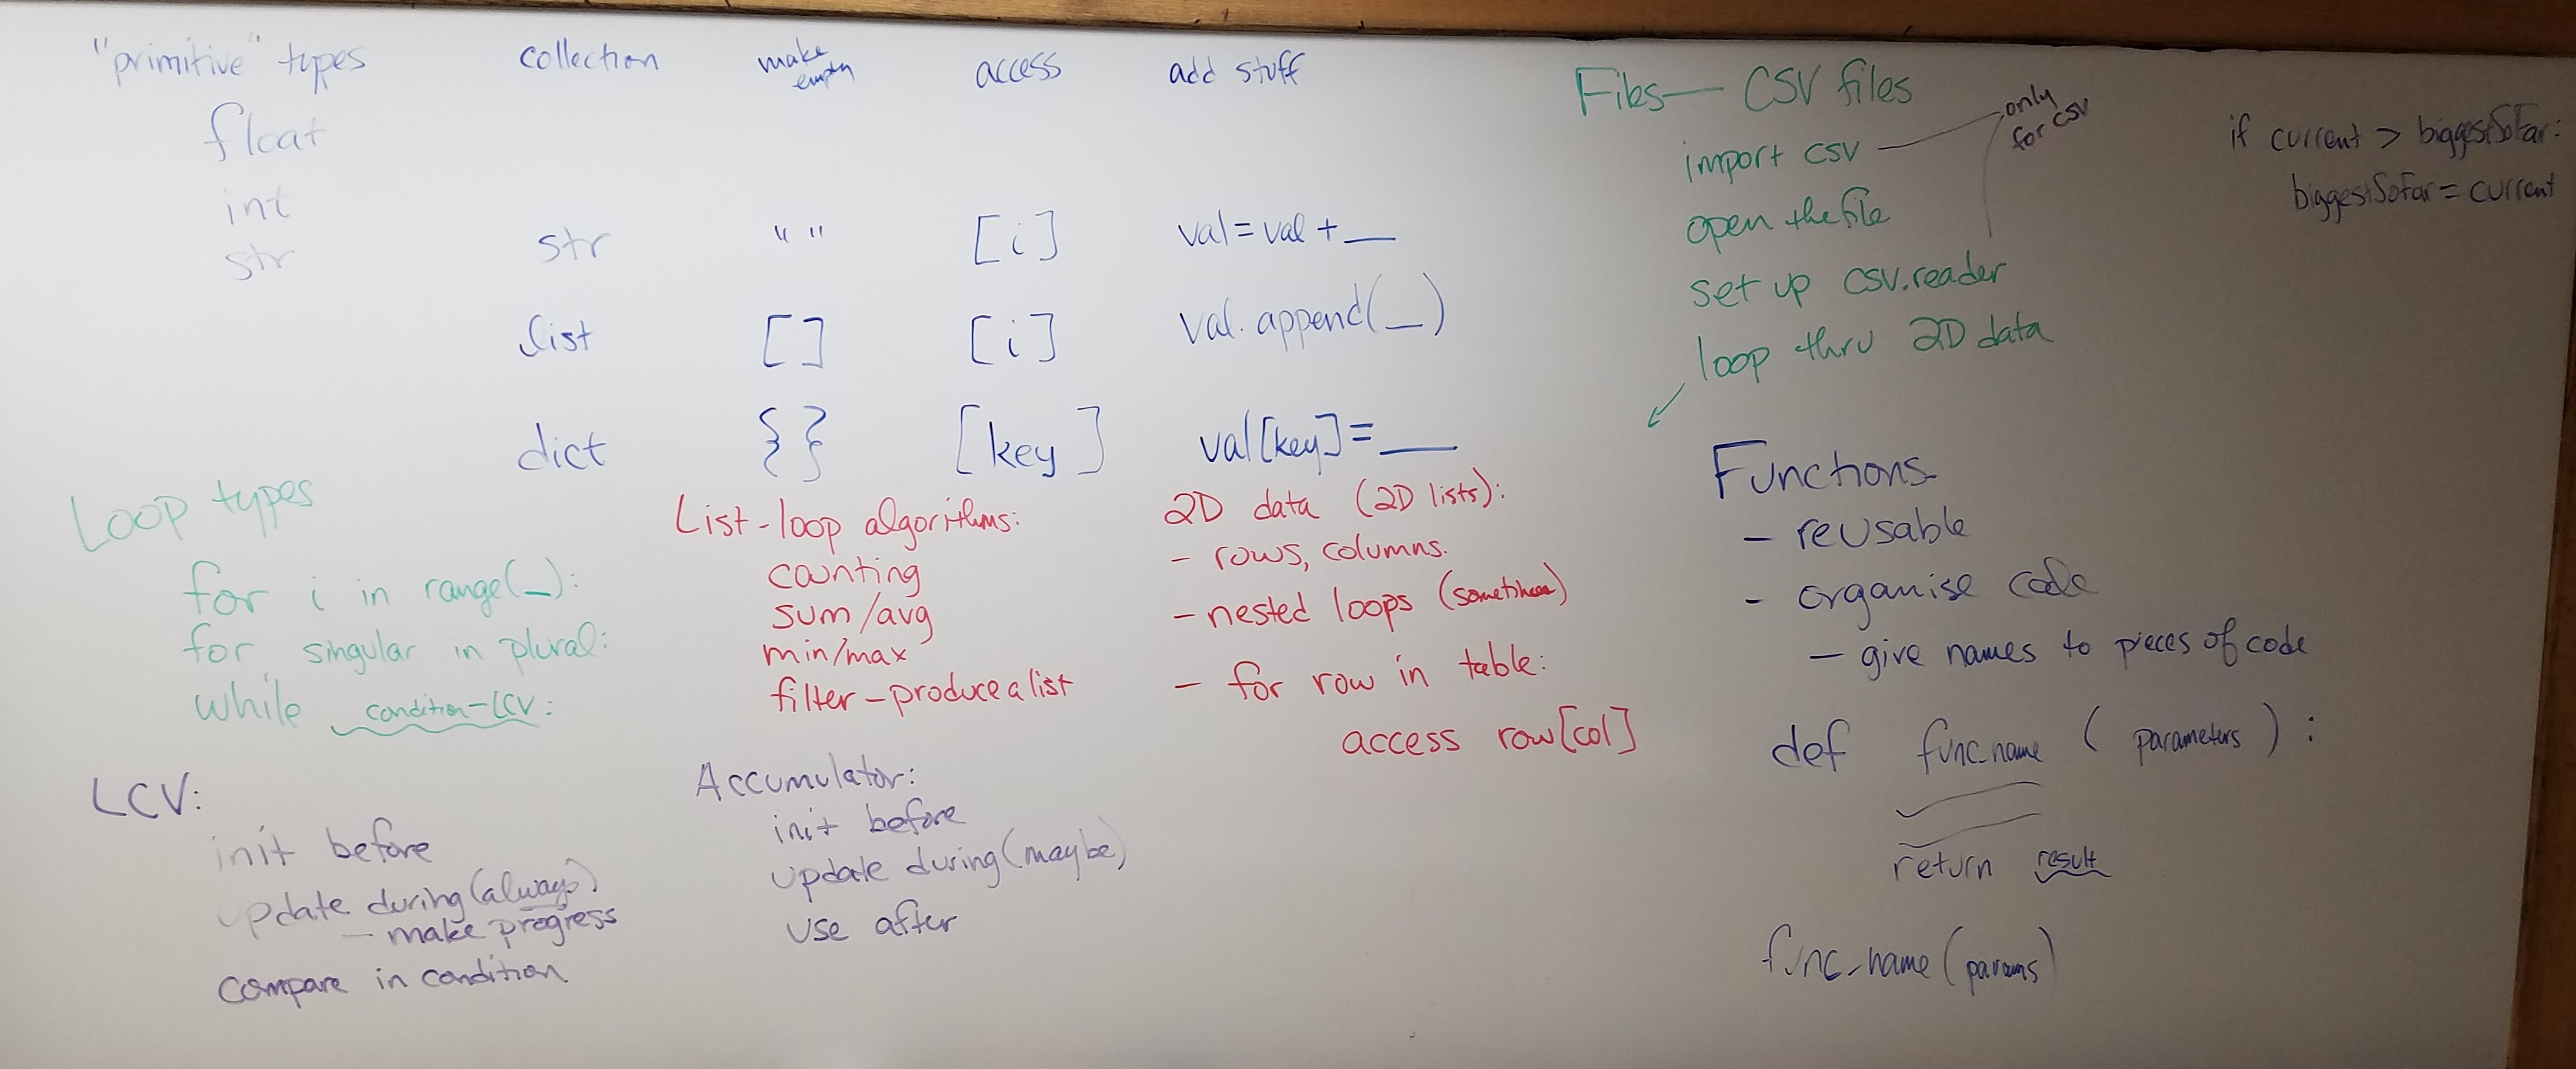 "primitive" types
float
int
str
collection make empty access add stuff
str " " [i] val = val + __
list [ ] [i] val.append(_)
dict { } [key] val[key] = __
Loop types
for i in range(_):
for singular in plural:
while condition-LCV:
LCV:
init before
update during (always)
- make progress
compare in condition
List-loop algorithms:
counting
sum/avg
min/max
filter - produce a list
Accumulator:
init before
update during (maybe)
use after
2D data (2D lists):
- rows, columns.
- nested loops (sometimes)
- for row in table:
access row[col]
Files — CSV files
import csv
only for csv
open the file
set up csv.reader
loop thru 2D data
Functions
- reusable
- organise code
- give names to pieces of code
def func_name ( parameters ) :
return result
func_name (params)
if current > biggestSoFar:
biggestSoFar = current